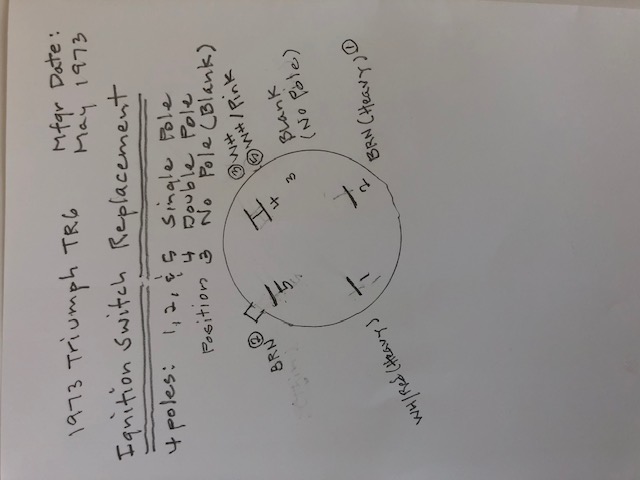 1973 Triumph TR6
Mfgr Date:
May 1973
Ignition Switch Replacement
4 poles: 1, 2, & 5 Single Pole
4 Double Pole
Position 3 No Pole (Blank)
BRN ②
③ Wht
⑤ Wht/Pink
Blank
(No Pole)
5
4
3
1
2
WH/Red (Heavy)
BRN (Heavy) ①